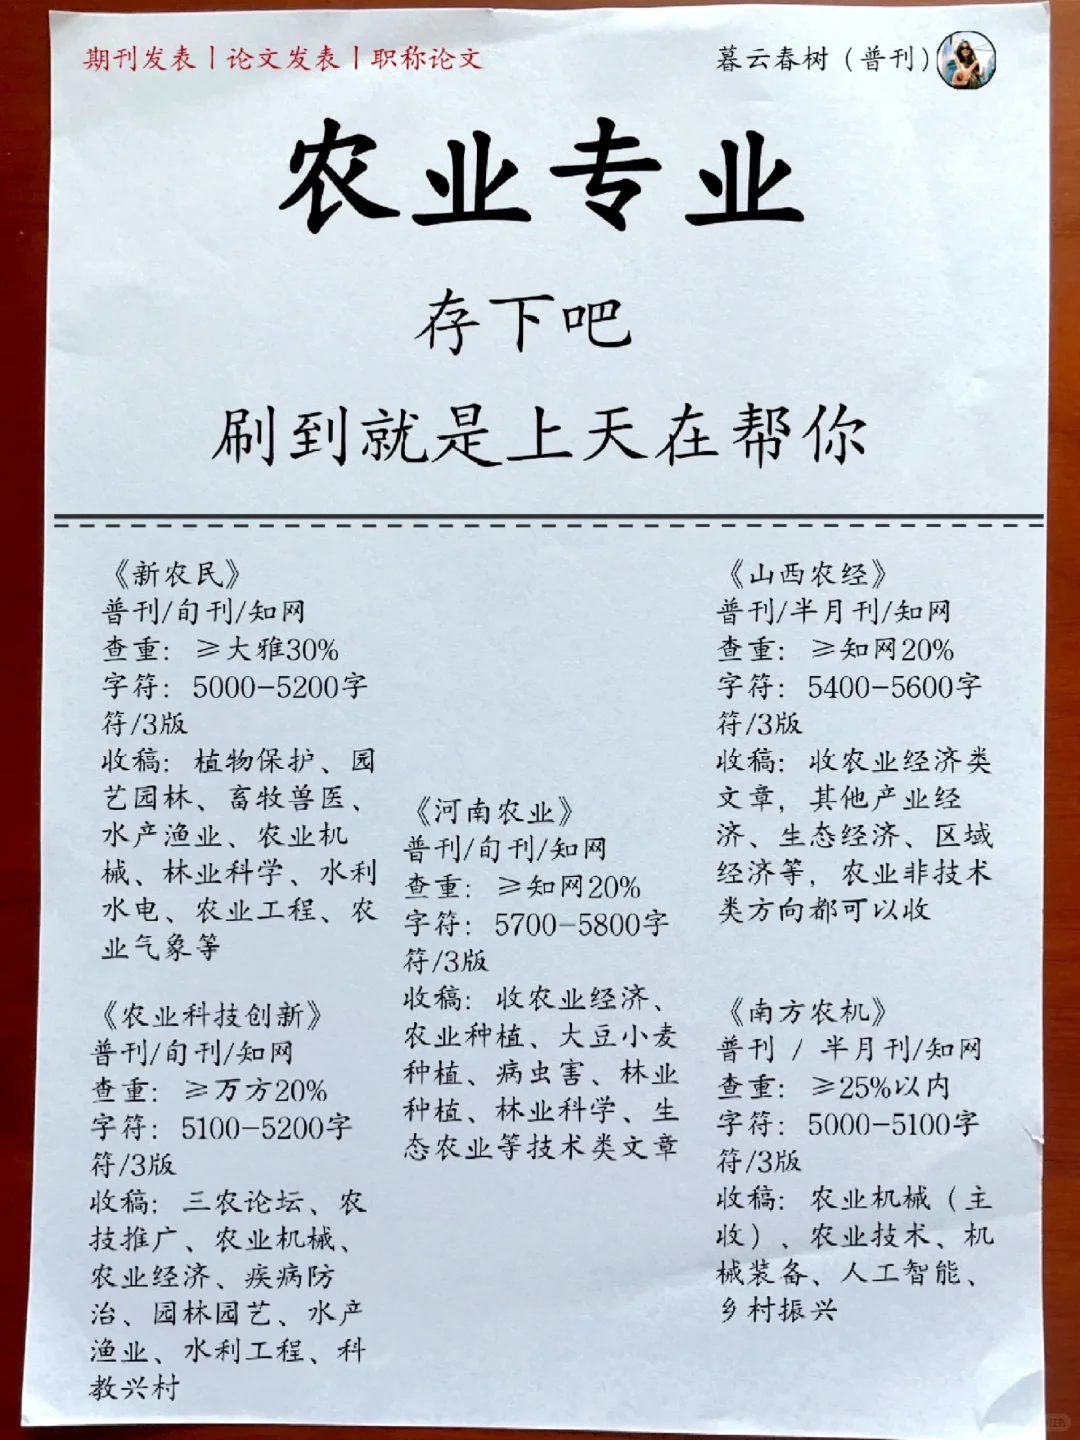 期刊发表|论文发表|职称论文
暮云春树(普刊)
农业专业
存下吧
刷到就是上天在帮你
《新农民》
普刊/旬刊/知网
查重：≥大雅30%
字符：5000-5200字
符/3版
收稿：植物保护、园
艺园林、畜牧兽医、
水产渔业、农业机
械、林业科学、水利
水电、农业工程、农
业气象等
《农业科技创新》
普刊/旬刊/知网
查重：≥万方20%
字符：5100-5200字
符/3版
收稿：三农论坛、农
技推广、农业机械、
农业经济、疾病防
治、园林园艺、水产
渔业、水利工程、科
教兴村
《河南农业》
普刊/旬刊/知网
查重：≥知网20%
字符：5700-5800字
符/3版
收稿：收农业经济、
农业种植、大豆小麦
种植、病虫害、林业
种植、林业科学、生
态农业等技术类文章
《山西农经》
普刊/半月刊/知网
查重：≥知网20%
字符：5400-5600字
符/3版
收稿：收农业经济类
文章，其他产业经
济、生态经济、区域
经济等，农业非技术
类方向都可以收
《南方农机》
普刊 / 半月刊/知网
查重：≥25%以内
字符：5000-5100字
符/3版
收稿：农业机械（主
收）、农业技术、机
械装备、人工智能、
乡村振兴